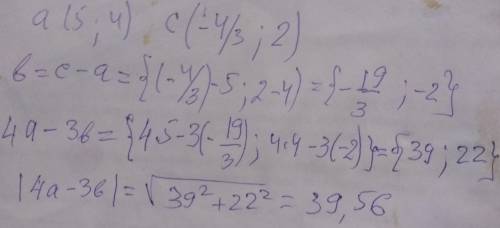 a (5 ; 4)   c (-4/3 ; 2)
в = c - a = {(-4/3) - 5 ; 2 - 4) = {-19/3 ; -2}
4a - 3в = {4.5 - 3(-19/3) ; 4.4 - 3(-2)} = {39 ; 22}
|4a - 3в| = √39²+22² = 39,56